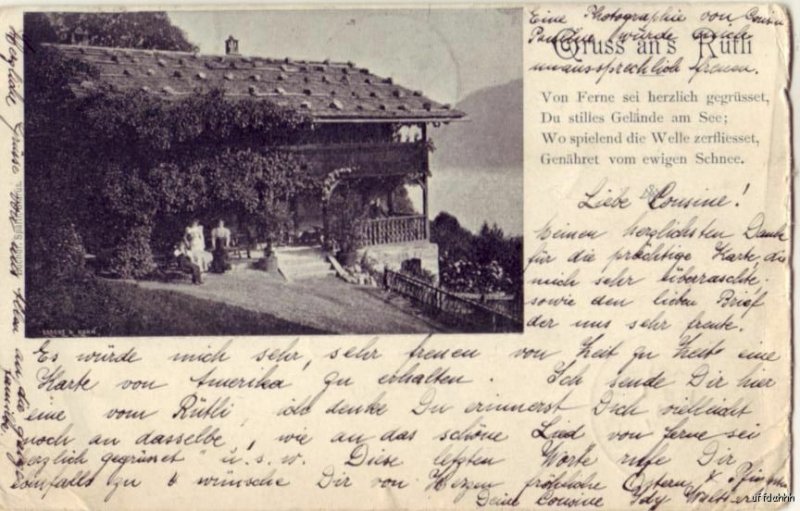 Eine Photographie von Cousine
Pauline würde mich
unaussprechlich freuen.
Gruss an's Rütli
Von Ferne sei herzlich gegrüsset,
Du stilles Gelände am See;
Wo spielend die Welle zerfliesset,
Genähret vom ewigen Schnee.
Liebe Cousine!
Meinen herzlichsten Dank
für die prächtige Karte, die
mich sehr überraschte,
sowie den lieben Brief
der uns sehr freute.
Es würde mich sehr, sehr freuen von Zeit zu Zeit eine
Karte von Amerika zu erhalten. Ich sende Dir hier
eine vom Rütli, ich denke Du erinnerst Dich vielleicht
noch an dasselbe, wie an das schöne Lied "von ferne sei
herzlich gegrüsset" u. s. w. Diese letzten Worte rufe Dir
ebenfalls zu & wünsche Dir von Herzen fröhliche Ostern & Pfingsten
Deine Cousine Idy
Herzliche Grüsse von uns Allen an die ganze
Familie.
uffdahhh